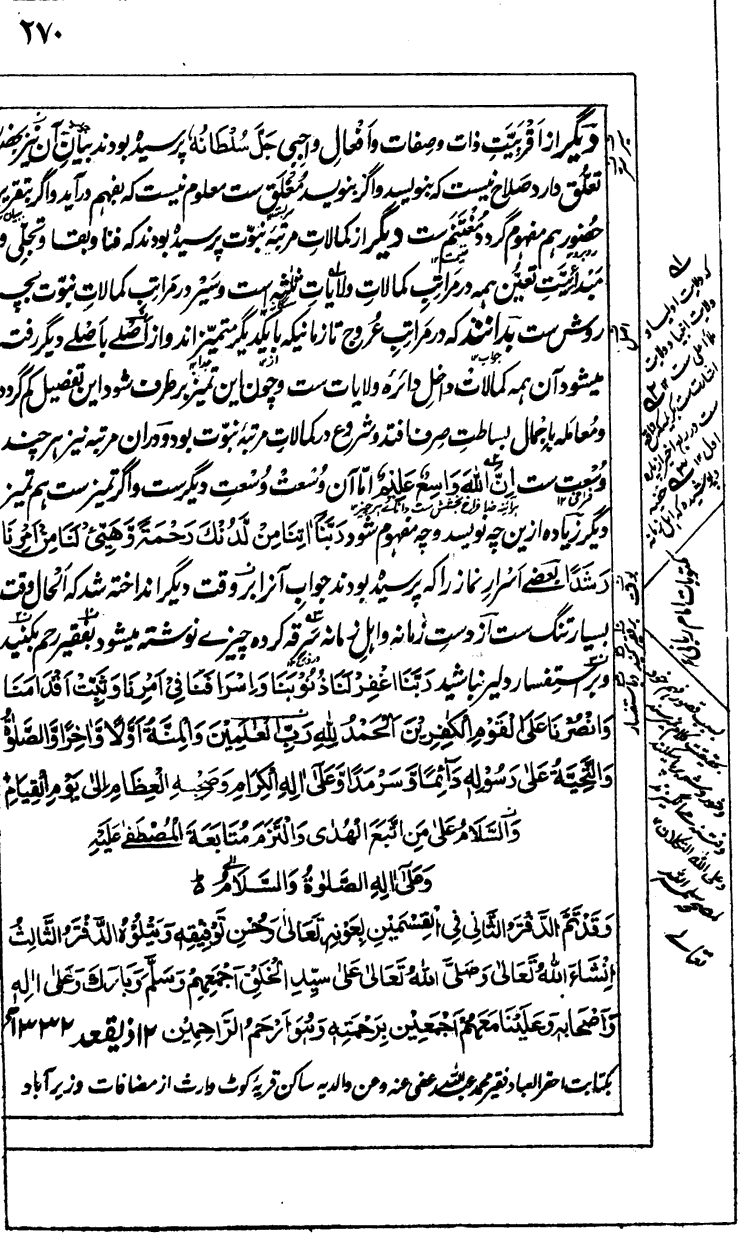 ۲۷۰
دیگر از اَقْرَبِیَّتِ ذات وصِفات واَفْعالِ واجبی جَلَّ سُلْطَانُهٗ پرسیدہ بودند بیانِ آن نیز بحضور
تعلُّق دارد صَلاح نیست کہ بنویسد واگر بنویسد مُغْلَق ست معلوم نیست کہ بفہم درآید واگر بتقریر
حضور ہم مفہوم گردد مُغْتَنَم ست دیگر از کمالاتِ مرتبۂ نبوّت پرسیدہ بودند کہ فنا وبقا وتجلّی و
مَبْدَأِیّتِ تعیُّن ہمہ در مَراتبِ کمالاتِ ولایاتِ ثلٰثہ است وسَیْر در مَراتبِ کمالاتِ نبوّت بچہ
روش ست بدانند کہ در مَراتبِ عُروج تا زمانیکہ بایکدیگر متمیّز اند واز اَصْلے بااَصْلے دیگر رفتہ
میشود آن ہمہ کمالات داخلِ دائرہ ولایات ست وچون این تمیز برطرف شود این تفصیل کم گردد
ومُعاملہ باِجْمال بساطتِ صِرف افتد وشروع در کمالاتِ مرتبۂ نبوّت بود ودران مرتبہ نیز ہرچند
وُسْعت ست اِنَّ اللّٰهَ وَاسِعٌ عَلِیْمٌ امّا آن وُسْعت وُسْعتِ دیگر ست واگر تمیز ست ہم تمیز
دیگر زیادہ ازین چہ نویسد وچہ مفہوم شود رَبَّنَآ اٰتِنَا مِنْ لَّدُنْكَ رَحْمَةً وَّهَیِّئْ لَنَا مِنْ اَمْرِنَا
رَشَدًا بعضے اَسْرارِ نماز را کہ پرسیدہ بودند جوابِ آنرا بر وقت دیگر انداختہ شد کہ اَلْحال وقت
بسیار تنگ ست از دستِ زمانہ واہلِ زمانہ سَرقہ کردہ چیزے نوشتہ میشود بفقیر رحم بکنید
وبر اِستفسار دلیر نباشید رَبَّنَا اغْفِرْ لَنَا ذُنُوْبَنَا وَاِسْرَافَنَا فِیْ اَمْرِنَا وَثَبِّتْ اَقْدَامَنَا
وَانْصُرْنَا عَلَی الْقَوْمِ الْكٰفِرِیْنَ اَلْحَمْدُ لِلّٰهِ رَبِّ الْعٰلَمِیْنَ وَالْمِنَّةُ اَوَّلًا وَّاٰخِرًا وَالصَّلٰوةُ
وَالتَّحِیَّةُ عَلٰی رَسُوْلِهٖ دَآئِمًا وَّسَرْمَدًا وَعَلٰی اٰلِهِ الْكِرَامِ وَصَحْبِهِ الْعِظَامِ اِلٰی یَوْمِ الْقِیَامِ
وَالسَّلَامُ عَلٰی مَنِ اتَّبَعَ الْهُدٰی وَالْتَزَمَ مُتَابَعَةَ الْمُصْطَفٰے عَلَیْهِ
وَعَلٰٓی اٰلِهِ الصَّلٰوةُ وَالسَّلَامُ
وَقَدْ تَمَّ الدَّفْتَرُ الثَّانِی فِی الْقِسْمَیْنِ بِعَوْنِهٖ تَعَالٰی وَحُسْنِ تَوْفِیْقِهٖ وَیَتْلُوْهُ الدَّفْتَرُ الثَّالِثُ
اِنْشَاءَ اللّٰهُ تَعَالٰی وَصَلَّی اللّٰهُ تَعَالٰی عَلٰی سَیِّدِ الْخَلْقِ اَجْمَعِهِمْ وَسَلَّمَ وَبَارَكَ وَعَلٰی اٰلِهٖ
وَاَصْحَابِهٖ وَعَلَیْنَا مَعَهُمْ اَجْمَعِیْنَ بِرَحْمَتِهٖ وَهُوَ اَرْحَمُ الرَّاحِمِیْنَ ۱۲ ذیقعد ۱۳۳۲ھ
بکتابت احقر العباد فقیر محمد عبداللہ عفی عنہ وعن والدیہ ساکن قریۂ کوٹ وارث از مضافات وزیر آباد
مکتوبات امام ربانی